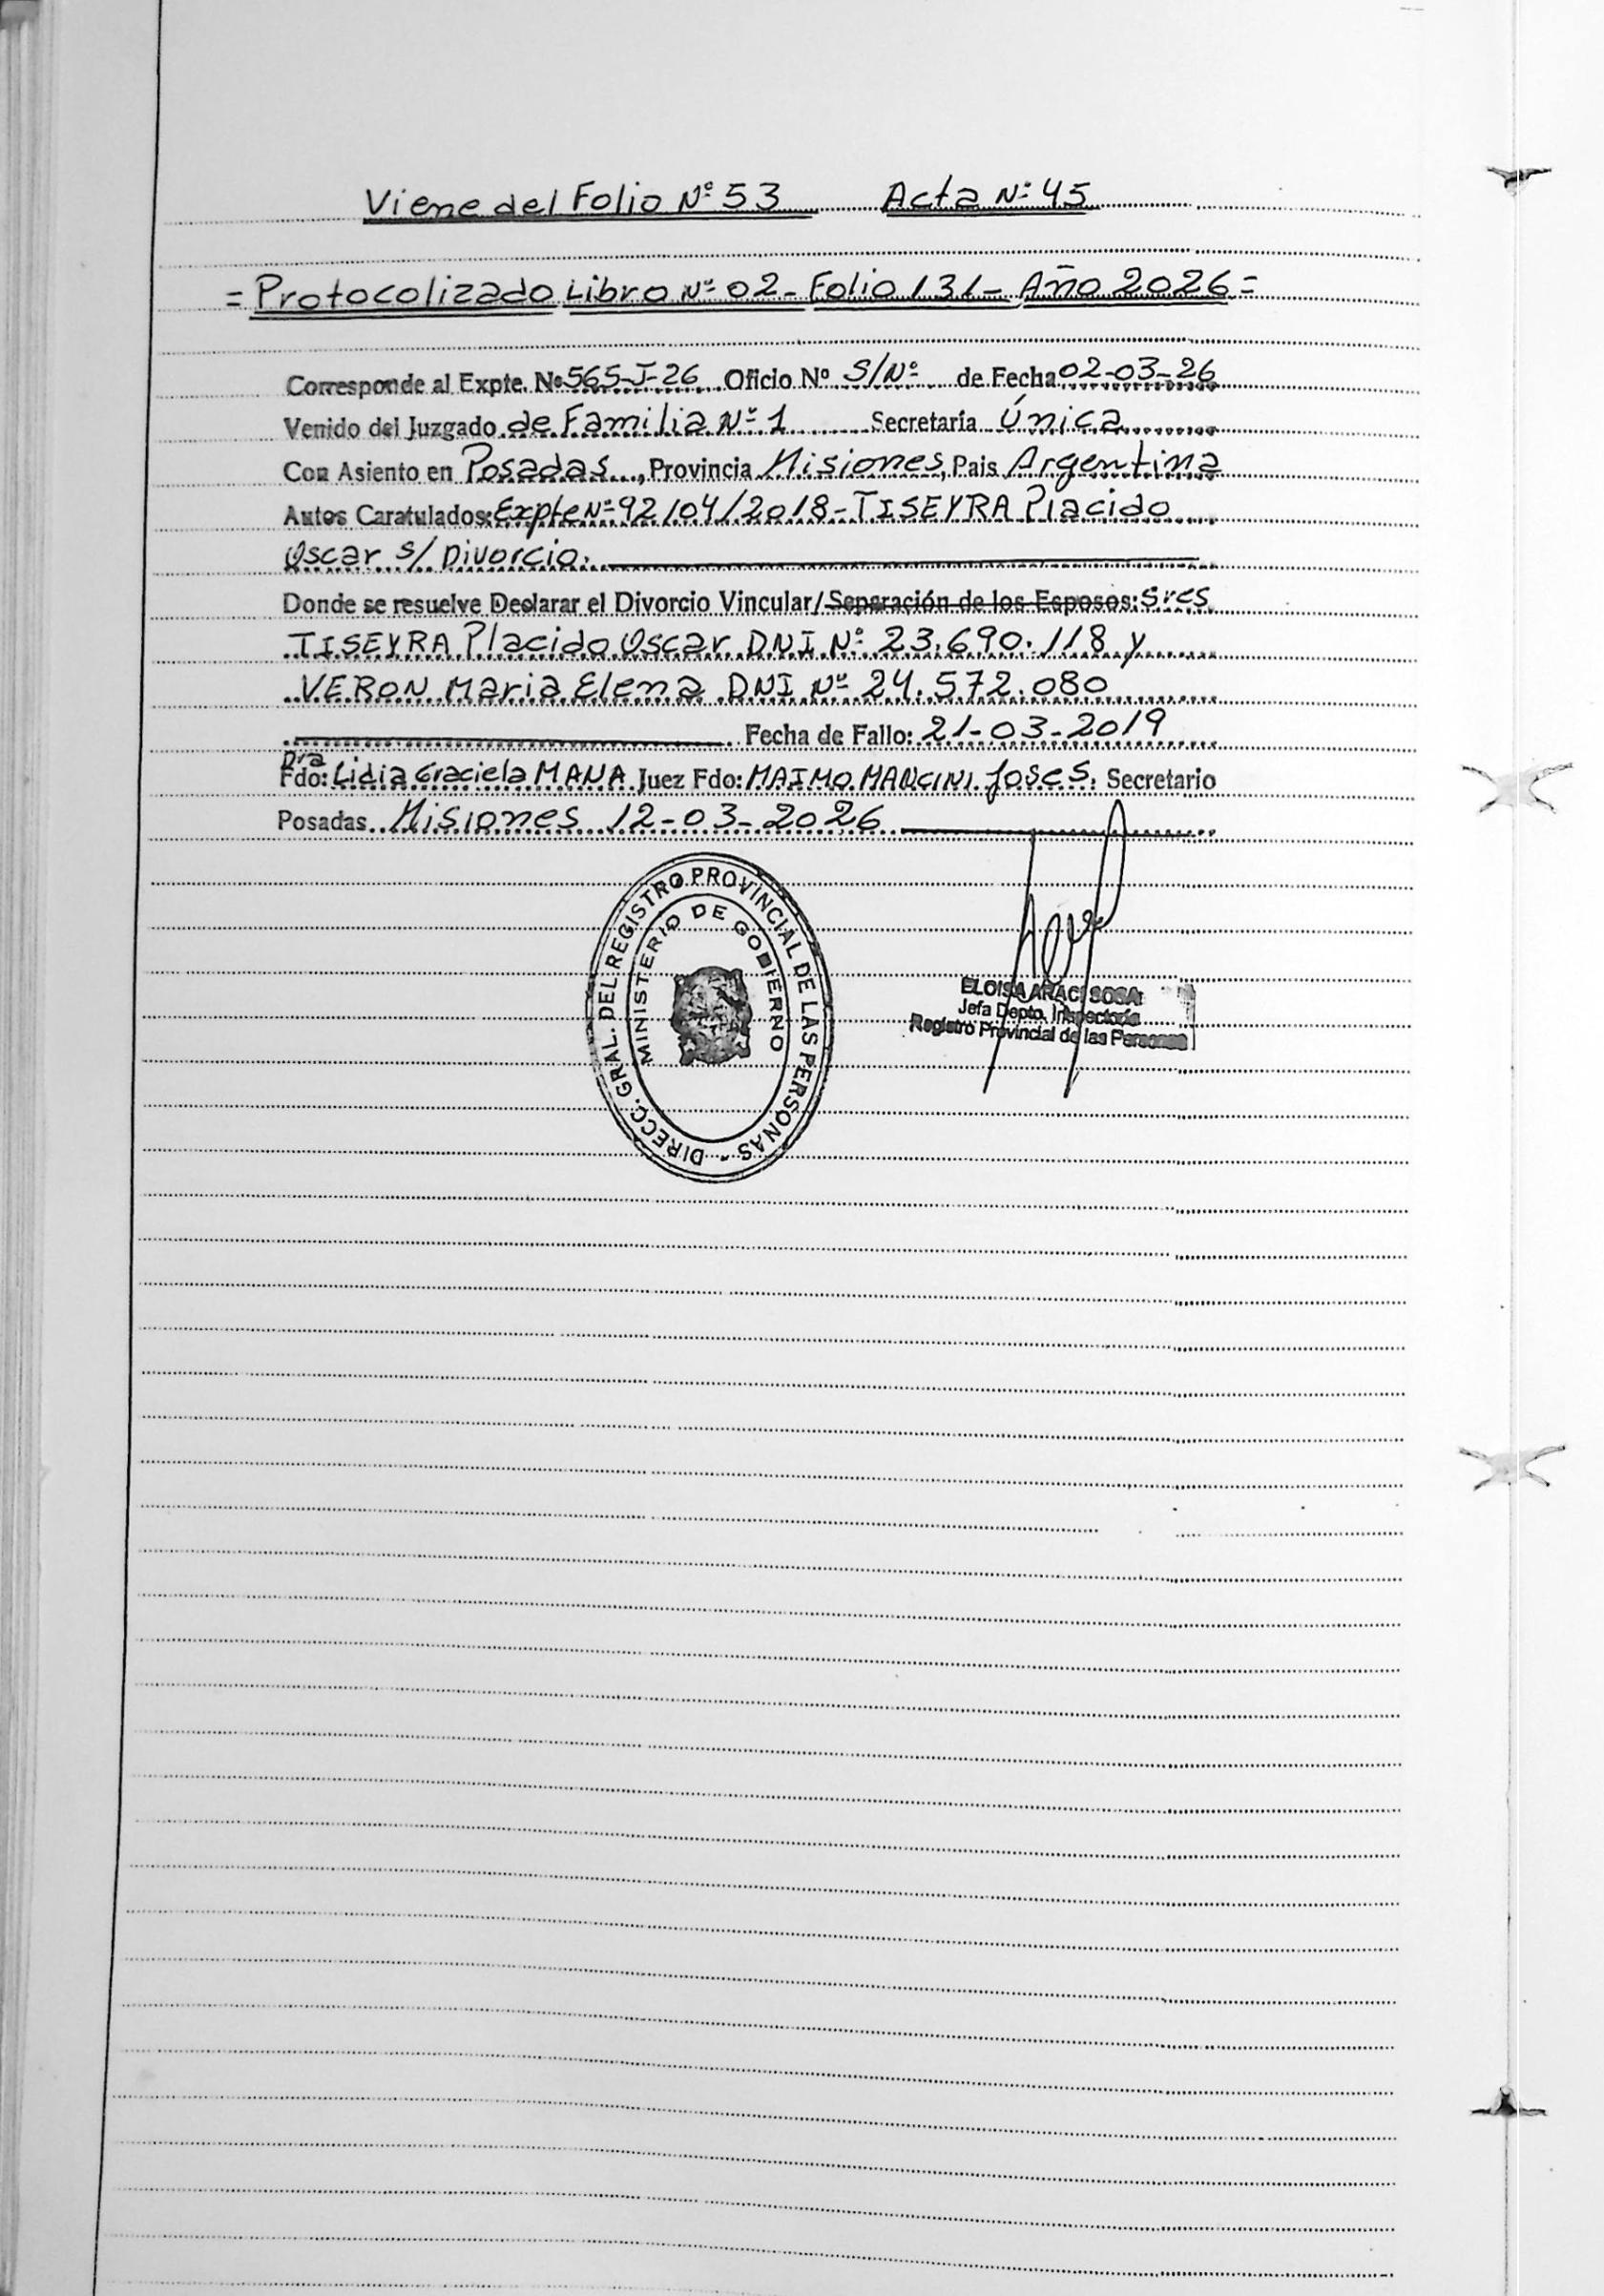 Viene del Folio Nº 53 Acta Nº 45
= Protocolizado Libro Nº 02 - Folio 131 - Año 2026 =
Corresponde al Expte. Nº 565-J-26 Oficio Nº S/Nº de Fecha 02-03-26
Venido del Juzgado de Familia Nº 1 Secretaría Única
Con Asiento en Posadas, Provincia Misiones, Pais Argentina
Autos Caratulados: Expte Nº 92104/2018 - TISEYRA Placido
Oscar s/ Divorcio.
Donde se resuelve Declarar el Divorcio Vincular/Separación de los Esposos: Sres
TISEYRA Placido Oscar DNI Nº 23.690.118 y
VERON Maria Elena DNI Nº 24.572.080
Fecha de Fallo: 21-03-2019
Dra
Fdo: Lidia Graciela MANA Juez Fdo: MAIMO MANCINI Jose S. Secretario
Posadas Misiones 12-03-2026
DIRECC. GRAL. DEL REGISTRO PROVINCIAL DE LAS PERSONAS -
MINISTERIO DE GOBIERNO
ELOISA ARACI SOSA
Jefa Depto. Inspectoría
Registro Provincial de las Personas